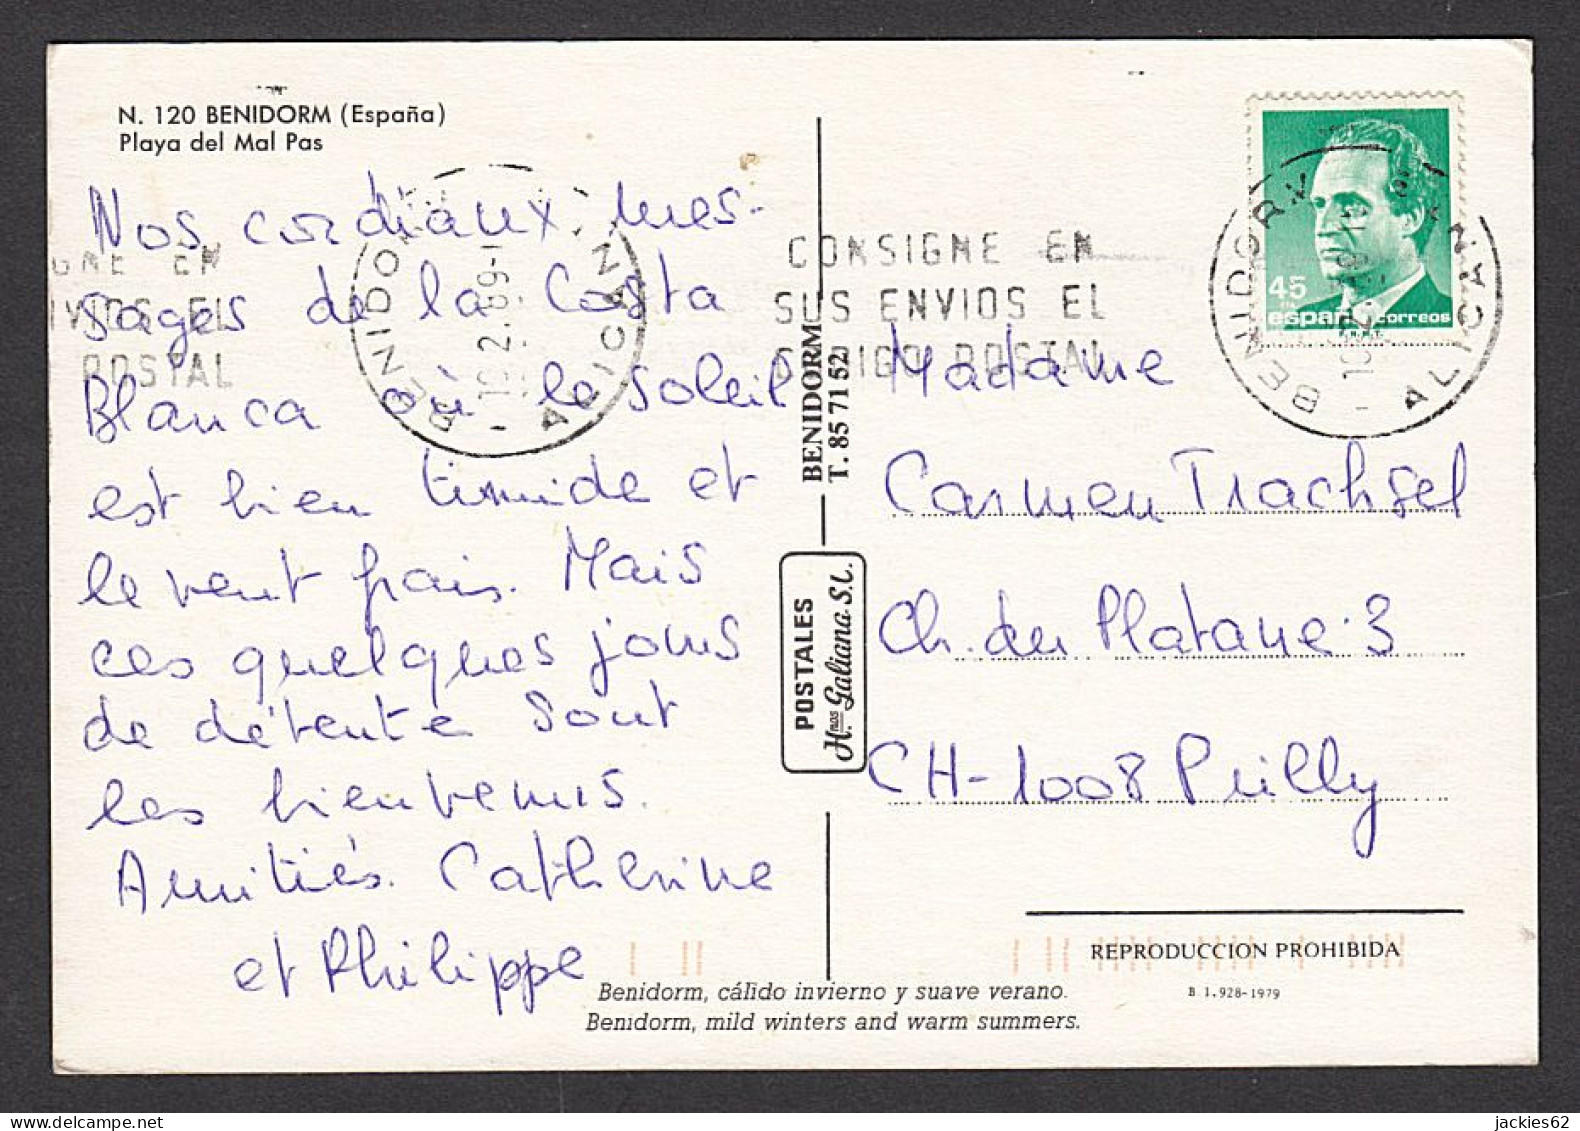 N. 120 BENIDORM (España)
Playa del Mal Pas
Nos cordiaux mes-
sages de la Costa
Blanca où le soleil
est bien timide et
le vent frais. Mais
ces quelques jours
de détente sont
les bienvenus.
Amitiés. Catherine
et Philippe
GNE EN
VIOS EL
POSTAL
BENIDORM
ALICANTE
CONSIGNE EN
SUS ENVIOS EL
CODIGO POSTAL
BENIDORM
ALICANTE
45
españa correos
BENIDORM
T. 85 71 52
POSTALES
Hnos Galiana S.L.
Madame
Carmen Trachsel
Ch. du Platane 3
CH-1008 Prilly
REPRODUCCION PROHIBIDA
B 1.928-1979
Benidorm, cálido invierno y suave verano.
Benidorm, mild winters and warm summers.
jackies62